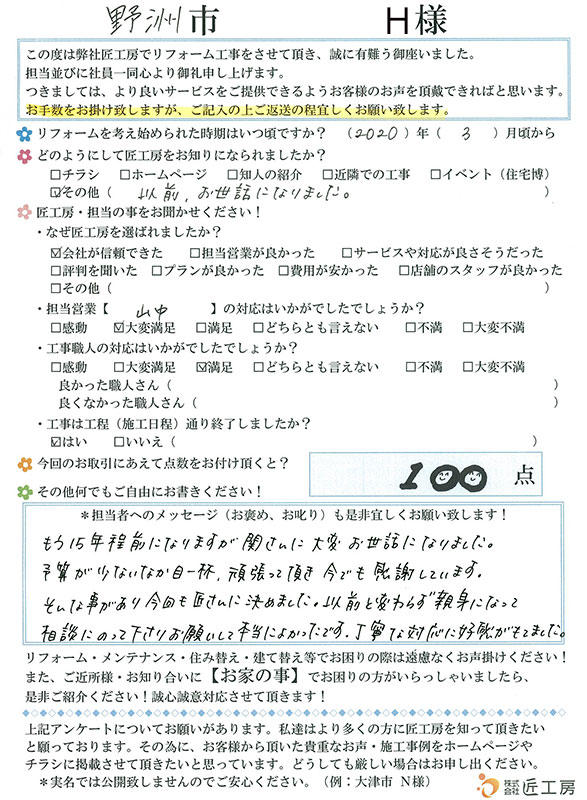 野洲市 H様
この度は弊社匠工房でリフォーム工事をさせて頂き、誠に有難う御座いました。
担当並びに社員一同心より御礼申し上げます。
つきましては、より良いサービスをご提供できるようお客様のお声を頂戴できればと思います。
お手数をお掛け致しますが、ご記入の上ご返送の程宜しくお願い致します。
リフォームを考え始められた時期はいつ頃ですか？ （2020）年（ 3 ）月頃から
どのようにして匠工房をお知りになられましたか？
□チラシ □ホームページ □知人の紹介 □近隣での工事 □イベント（住宅博）
☑その他（ 以前、お世話になりました。 ）
匠工房・担当の事をお聞かせください！
・なぜ匠工房を選ばれましたか？
☑会社が信頼できた □担当営業が良かった □サービスや対応が良さそうだった
□評判を聞いた □プランが良かった □費用が安かった □店舗のスタッフが良かった
□その他（ ）
・担当営業【 山中 】の対応はいかがでしたでしょうか？
□感動 ☑大変満足 □満足 □どちらとも言えない □不満 □大変不満
・工事職人の対応はいかがでしたでしょうか？
□感動 □大変満足 ☑満足 □どちらとも言えない □不満 □大変不満
良かった職人さん（ ）
良くなかった職人さん（ ）
・工事は工程（施工日程）通り終了しましたか？
☑はい □いいえ（ ）
今回のお取引にあえて点数をお付け頂くと？ 100 点
その他何でもご自由にお書きください！
＊担当者へのメッセージ（お褒め、お叱り）も是非宜しくお願い致します！
もう15年程前になりますが関さんに大変お世話になりました。
予算が少ないなか目一杯、頑張って頂き今でも感謝しています。
そんな事があり今回も匠さんに決めました。以前と変わらず親身になって
相談にのって下さりお願いして本当によかったです。丁寧な対応に好感がもてました。
リフォーム・メンテナンス・住み替え・建て替え等でお困りの際は遠慮なくお声掛けください！
また、ご近所様・お知り合いに【お家の事】でお困りの方がいらっしゃいましたら、
是非ご紹介ください！誠心誠意対応させて頂きます！
上記アンケートについてお願いがあります。私達はより多くの方に匠工房を知って頂きたい
と願っております。その為に、お客様から頂いた貴重なお声・施工事例をホームページや
チラシに掲載させて頂きたいと思っています。どうしても厳しい場合はお申し出ください。
＊実名では公開致しませんのでご安心ください。（例：大津市 N様）
株式会社 匠工房